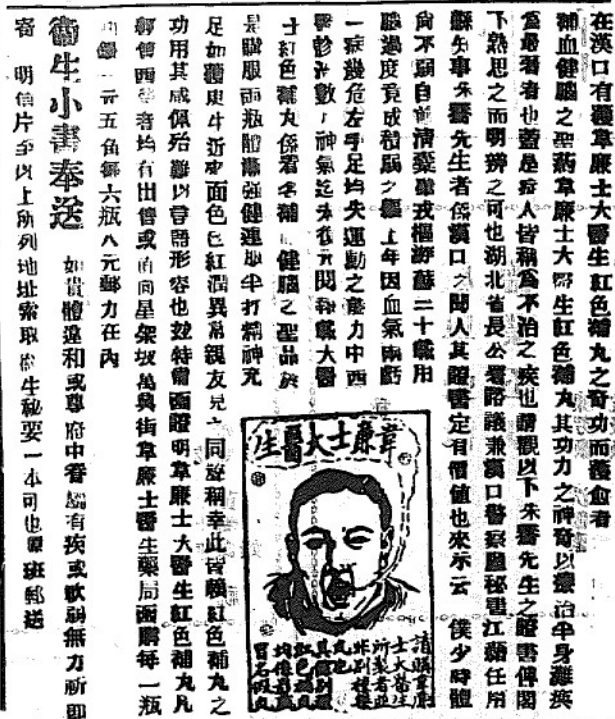 在漢口有獲韋廉士大醫生紅色補丸之奇功而獲愈者
補血健腦之聖葯韋廉士大醫生紅色補丸其功力之神奇以療治半身癱瘓
爲最著者也蓋是症人皆稱爲不治之疾也請觀以下朱醫先生之證書俾閣
下熟思之而明辨之可也湖北省長公署諮議兼漢口警察廳秘書江蘇任用
縣知事朱醫先生者係漢口之聞人其證書定有價值也來示云 僕少時體
尚不弱自前清棄戎樞蘇二十載用
腦過度竟成積弱之軀上年因血氣兩虧
一病幾危左手足均失運動之能力中西
醫診治數神氣迄未復元閱報載大醫
士紅色補丸係著名補健腦之聖品於
是購服兩瓶體漸强健連服半打精神充
足如獲更生近來面色已紅潤異常親友見之同聲稱幸此皆賴紅色補丸之
功用其感佩殆難以言語形容也玆特備函證明韋廉士大醫生紅色補丸凡
經售西藥者均有出售或直向星架坡萬興街韋廉士醫生藥局函購每一瓶
銀一元五角每六瓶八元郵力在內
衛生小書奉送 如貴體違和或尊府中眷屬有疾或軟弱無力祈即
寄 明信片至以上所列地址索取衛生秘要一本可也原班郵送
韋廉士大醫生
請購韋廉
士大醫生
所製者並
紅色補丸
冒名假丸